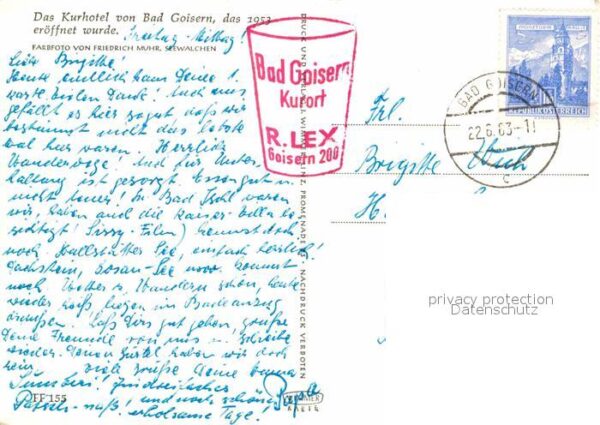 Das Kurhotel von Bad Goisern, das 1953
eröffnet wurde. Freitag-Mittag!
FARBFOTO VON FRIEDRICH MUHR, SEEWALCHEN
Liebe Brigitte!
Heute endlich kam Deine l.
Karte vielen Dank! Auch uns
gefällt es hier so gut, daß wir
bestimmt nicht das letzte
mal hier waren. Herrliche
Wanderwege! Und für Unter-
haltung ist gesorgt. Essen gut u.
nicht teuer! In Bad Ischl waren
wir, haben auch die Kaiser-Villa be-
sichtigt! (Sissy-Film) kennst doch
noch Hallstätter See, einfach herrlich!
Dachstein, Gosau-See kommt
noch. Wetter z. Wandern schön, heute
wieder heiß, liegen im Badeanzug
draußen! Laß Dirs gut gehen, grüße
Deine Freunde von mir u. schreibe
wieder. Deinen Zettel haben wir doch
viele Grüße Deine
und noch schöne
erholsame Tage! Papa
FF 155
Bad Goisern
Kurort
R. LEX
Goisern 200
NACHDRUCK VERBOTEN
REPUBLIK ÖSTERREICH
BAD GOISERN
22.6.63-11
c
Frl.
Brigitte
H.
privacy protection
Datenschutz